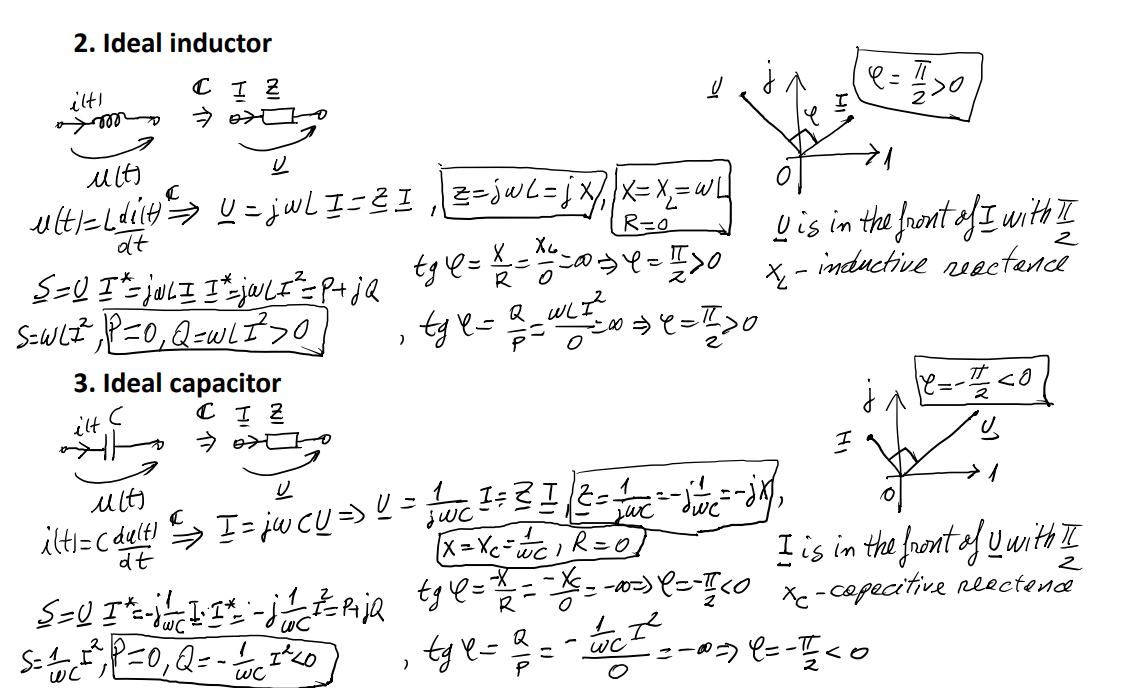 2. Ideal inductor
i(t) ℂ I Z
⇒
u(t) U
u(t)=L di(t)/dt ⇒ℂ U=jωL I=Z I , Z=jωL=jX, X=X_L=ωL
R=0
S=U I*=jωL I I*=jωLI²=P+jQ
S=ωLI², P=0, Q=ωLI²>0
tg φ=X/R=X_L/0=∞⇒φ=π/2>0
, tg φ=Q/P=ωLI²/0=∞⇒φ=π/2>0
U j φ I φ=π/2>0
0 1
U is in the front of I with π/2
X_L - inductive reactance
3. Ideal capacitor
i(t C ℂ I Z
⇒
u(t) U
i(t)=C du(t)/dt ⇒ℂ I=jωCU⇒U=1/jωC I=Z I, Z=1/jωC=-j 1/ωC=-jX,
X=X_C=1/ωC, R=0
S=U I*=-j 1/ωC I·I*=-j 1/ωC I²=P+jQ
S=1/ωC I², P=0, Q=-1/ωC I²<0
tg φ=-X/R=-X_C/0=-∞⇒φ=-π/2<0
, tg φ=Q/P=-1/ωC I²/0=-∞⇒φ=-π/2<0
j φ=-π/2<0
I U
0 1
I is in the front of U with π/2
X_C - capacitive reactance